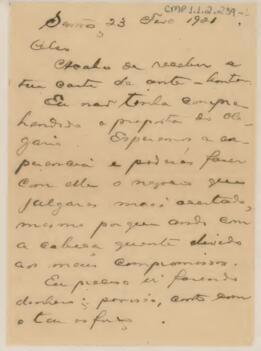 CMP.1.1.2.239-
Santos, 23 Dezo 1921.
Acabo de receber a
tua carta de ante-hontem
Eu não tinha compre
hendido o proposito do Ole
gario. Esperemos a es
e poderás fazer
com elle o negocio que
julgares mais acertado,
mesmo porque ando com
a cabeça quente devido
aos meus compromissos.
Eu preciso ir fazendo
dinheiro; por isso, conto com
o teu esforço.